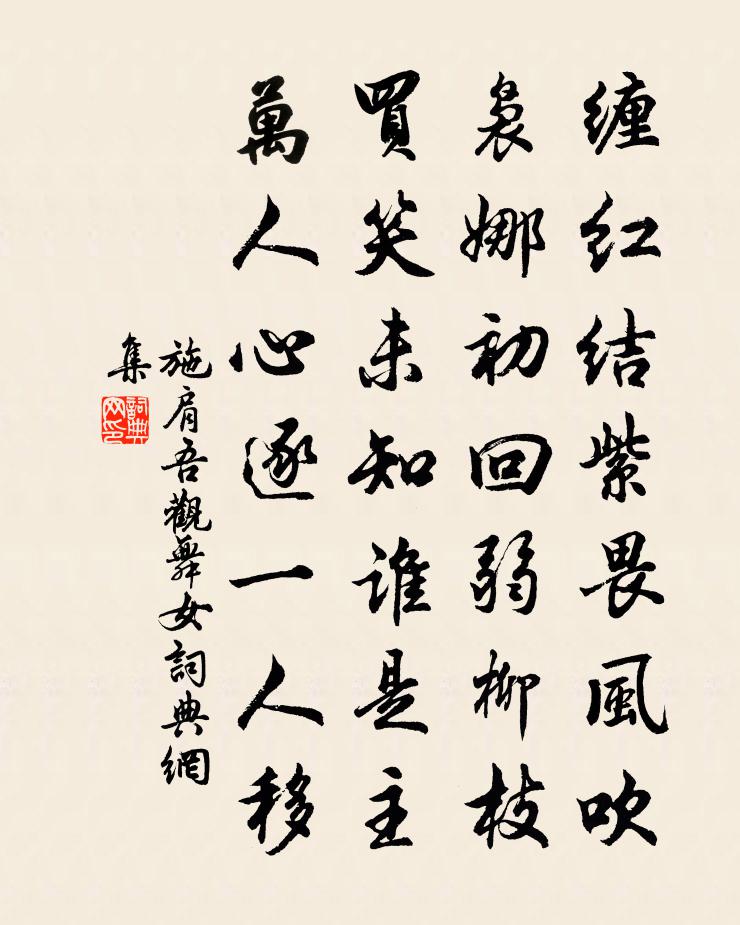 缠红结紫畏風吹
裊娜初回弱柳枝
買笑未知谁是主
萬人心逐一人移
施肩吾觀舞女詞典網
集
詞典網印